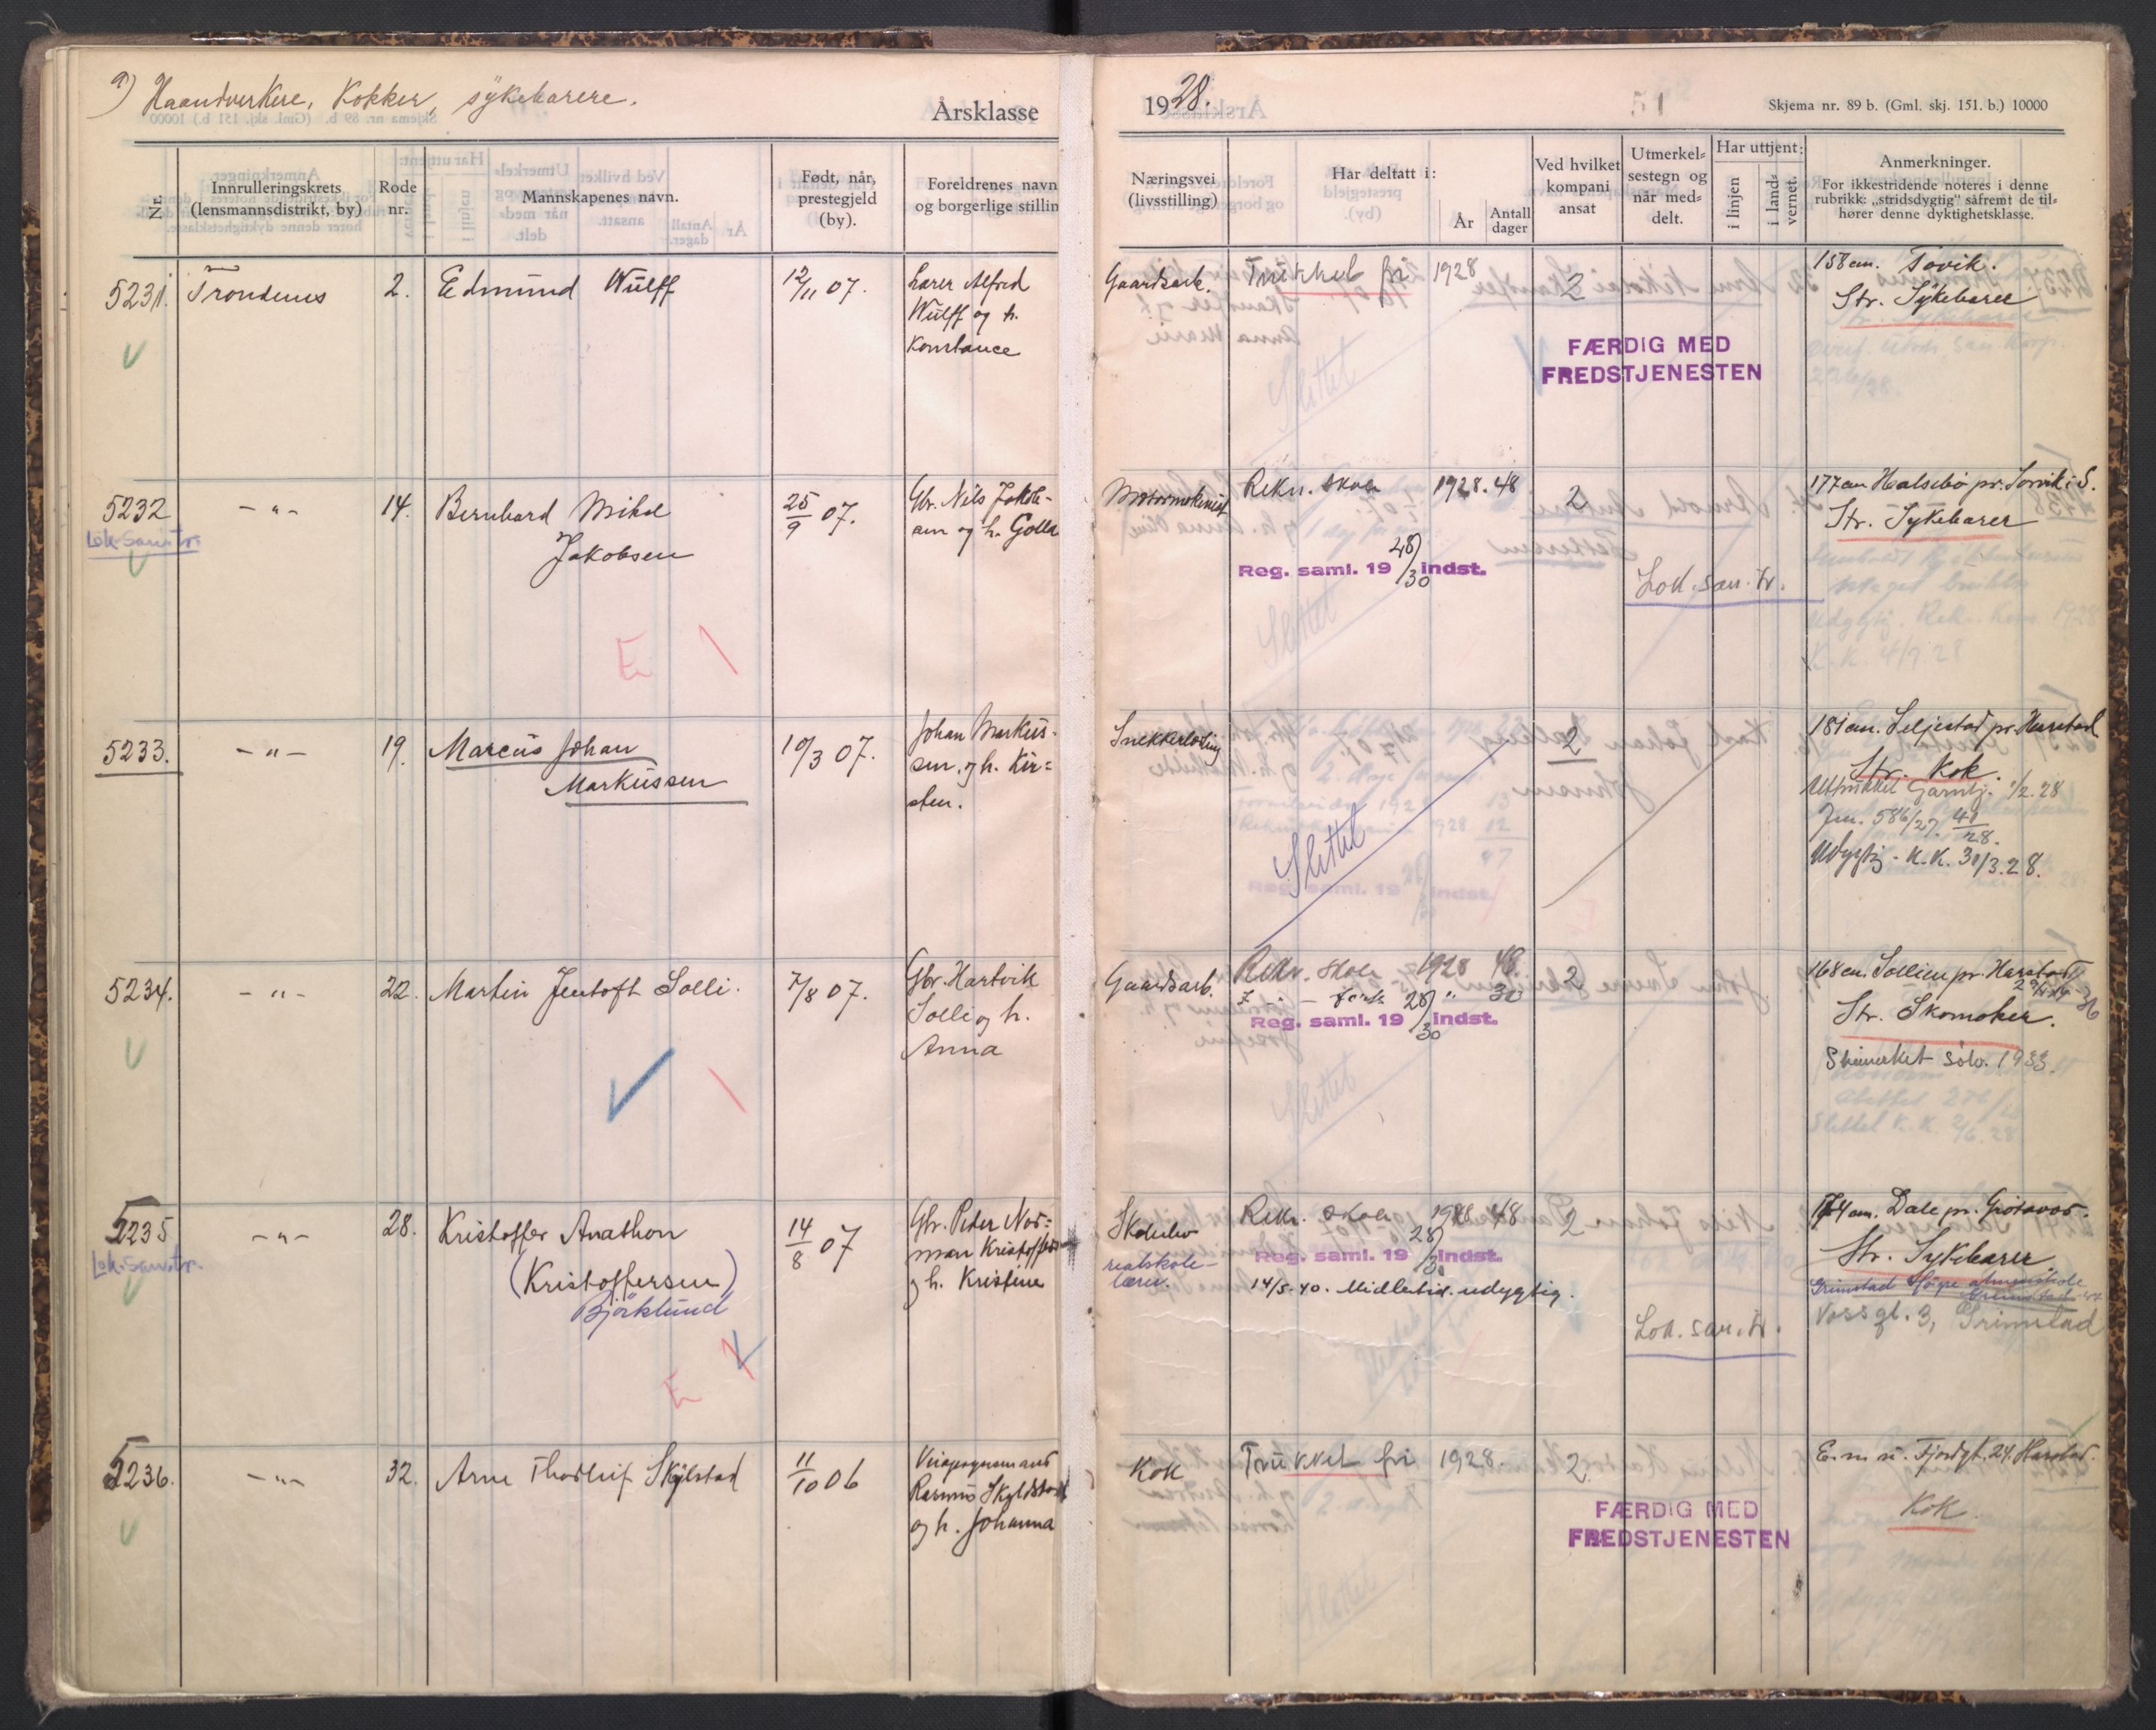 a) Haandverkere, Kokker, sykebærere.
Årsklasse
1928.
51
Skjema nr. 89 b. (Gml. skj. 151. b.) 10000
Nr.
Innrulleringskrets
(lensmannsdistrikt, by)
Rode
nr.
Mannskapenes navn.
Født, når,
prestegjeld
(by).
Foreldrenes navn
og borgerlige stillin
Næringsvei
(livsstilling)
Har deltatt i:
År
Antall
dager
Ved hvilket
kompani
ansat
Utmerkel=
sestegn og
når med=
delt.
Har uttjent:
i linjen
i land=
vernet.
Anmerkninger.
For ikkestridende noteres i denne
rubrikk: „stridsdygtig" såfremt de til=
hører denne dyktighetsklasse.
5231. Trondenes 2. Edmund Wulff 12/11 07.
Lærer Alfred
Wulff og h.
Konstance
Gaardsarb. Trukket fri 1928 2
FÆRDIG MED
FREDSTJENESTEN
158 cm. Tovik.
Str. Sykebærer
5232 - " - 14. Bernhard Mikal
Jakobsen
25/9 07.
Lok. San.tr.
E
Gbr. Nils Jakob-
sen og h. Golla
Motormaskinist Rekr. skole 1928. 48 2
Reg. saml. 19 28/30 indst.
Lok. san. tr.
177 cm Halsebø pr. Sørvik i S.
Str. Sykebærer
5233. - " - 19. Marcus Johan
Markussen
10/3 07.
Johan Markus-
sen og h. Kir=
sten.
Snekkerlærling 2
Slettet
181 cm. Seljestad pr. Harstad
Str. Kok.
Utstrukket Garntj. 1/2.28
Jnr. 586/27. 41/28.
Udygtig - K.K. 31/3.28.
5234. - " - 22. Martin Jentoft Solli. 7/8 07.
Gbr. Hartvik
Solli og h.
Anna
Gaardsarb. Rekr. skole 1928 48. 2
28 " 30
Reg. saml. 19 28/30 indst.
168 cm. Sollien pr. Harstad
Str. Skomaker.
Skimerket sølv. 1933.
5235 - " - 28. Kristoffer Anathon
(Kristoffersen)
Bjørklund
14/8 07
Lok. San.tr.
E
Gbr. Peder Nor=
man Kristoffers
og h. Kristine
Skoleelev
realskole-
lærer.
Rekr. skole 1928 48 2
Reg. saml. 19 28/30 indst.
14/5-40. Midlertid. udygtig.
Lok. san. tr.
174 cm. Dale pr. Grøtavær.
Str. Sykebærer.
Grimstad høyre almenskole
Vossgt. 3, Grimstad
5236. - " - 32. Arne Thorleif Skylstad 11/10 06
Rasmus Skyldstad
og h. Johanna
Kok Trukket fri 1928. 2.
FÆRDIG MED
FREDSTJENESTEN
E. m. u. Fjordgt. 24. Harstad.
Kok.